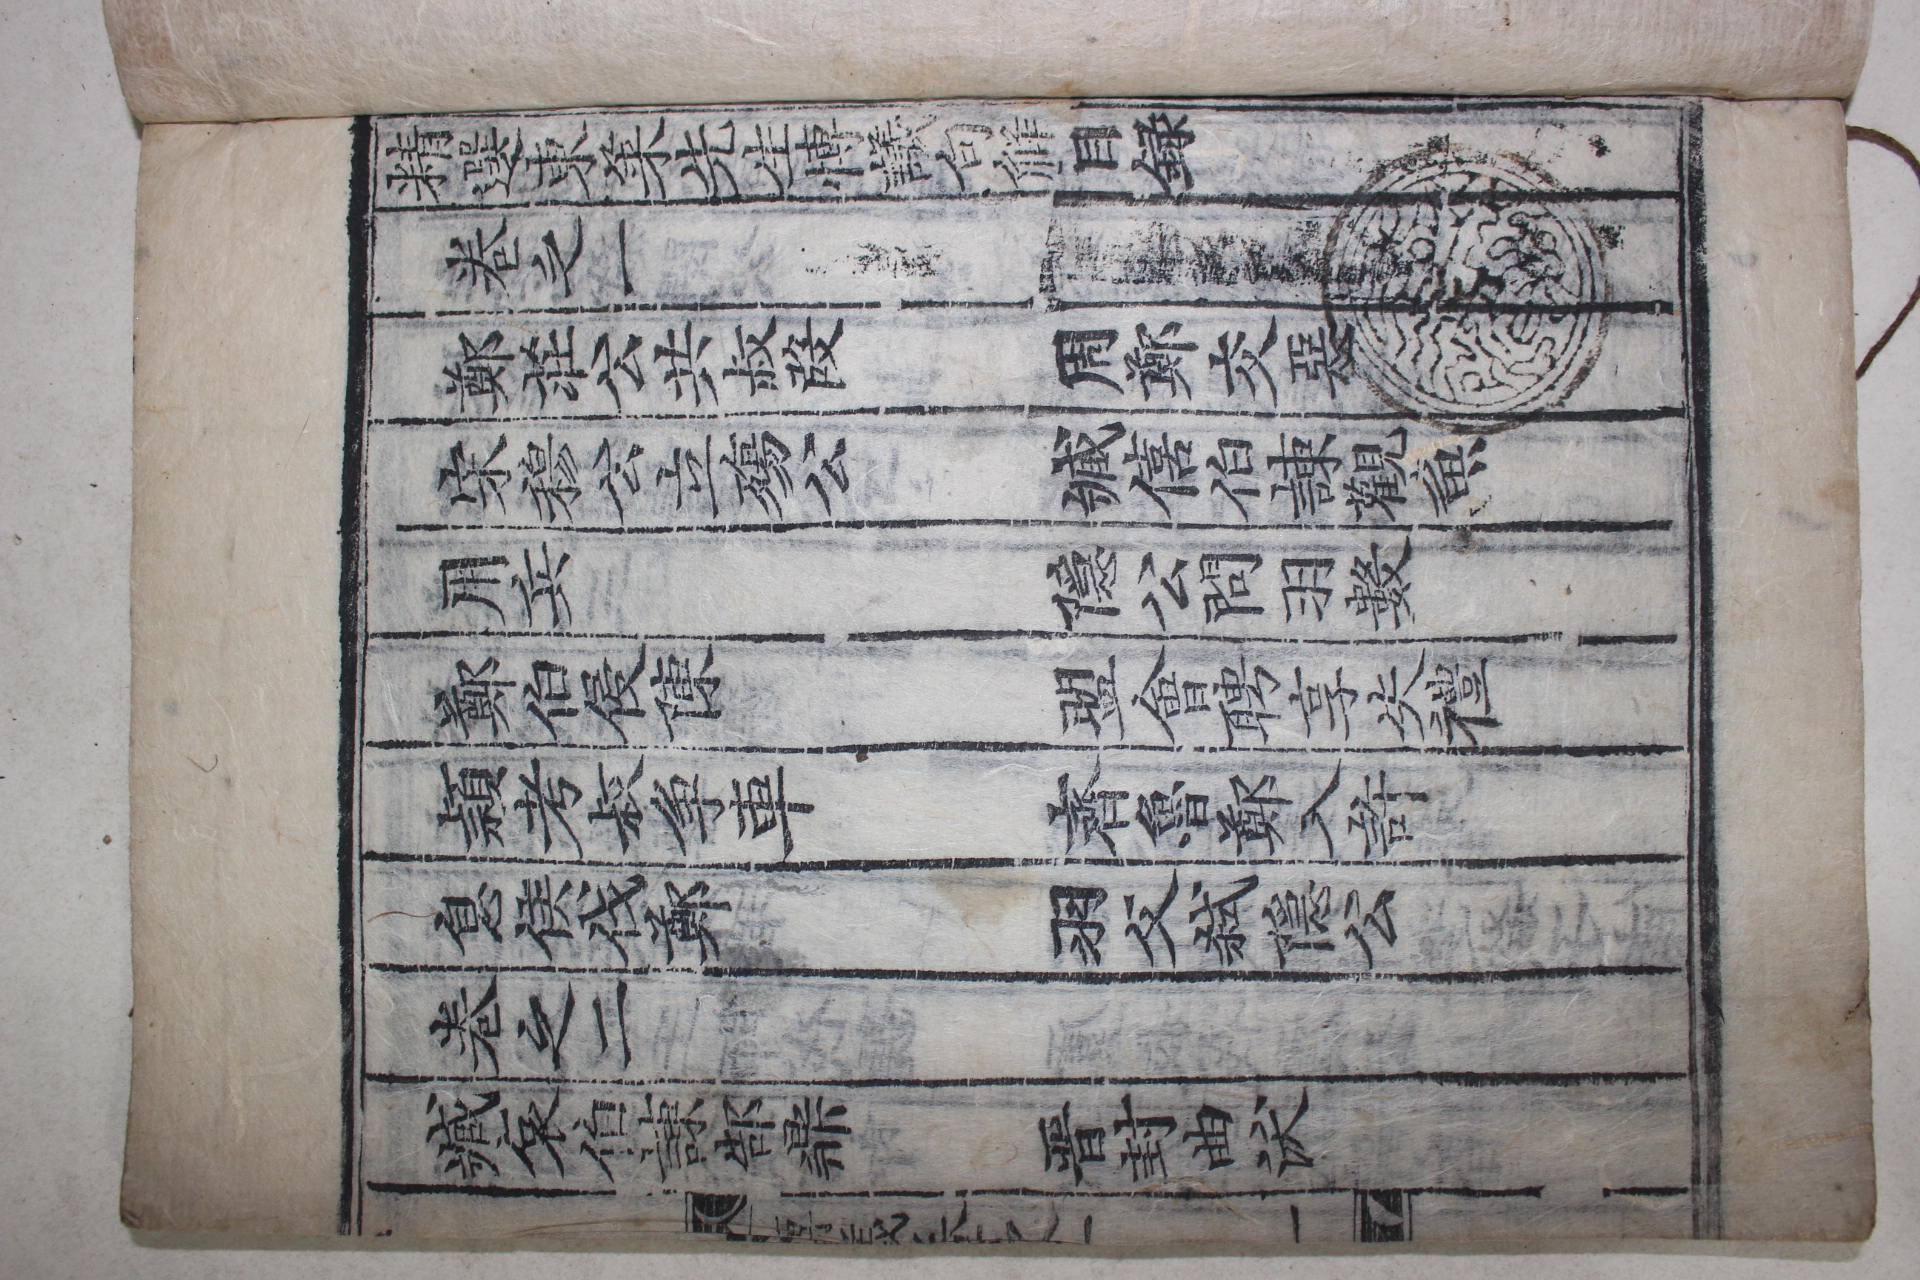 精選東萊先生博議句觧目錄
卷之一
鄭莊公共叔段 周鄭交惡
宋穆公立殤公 臧僖伯諫觀魚
用兵 隱公問羽數
鄭伯侵陳 盟會聘享失禮
潁考叔爭車 齊魯鄭入許
息侯伐鄭 羽父弒隱公
卷之二
臧哀伯諫郜鼎 晉封曲沃